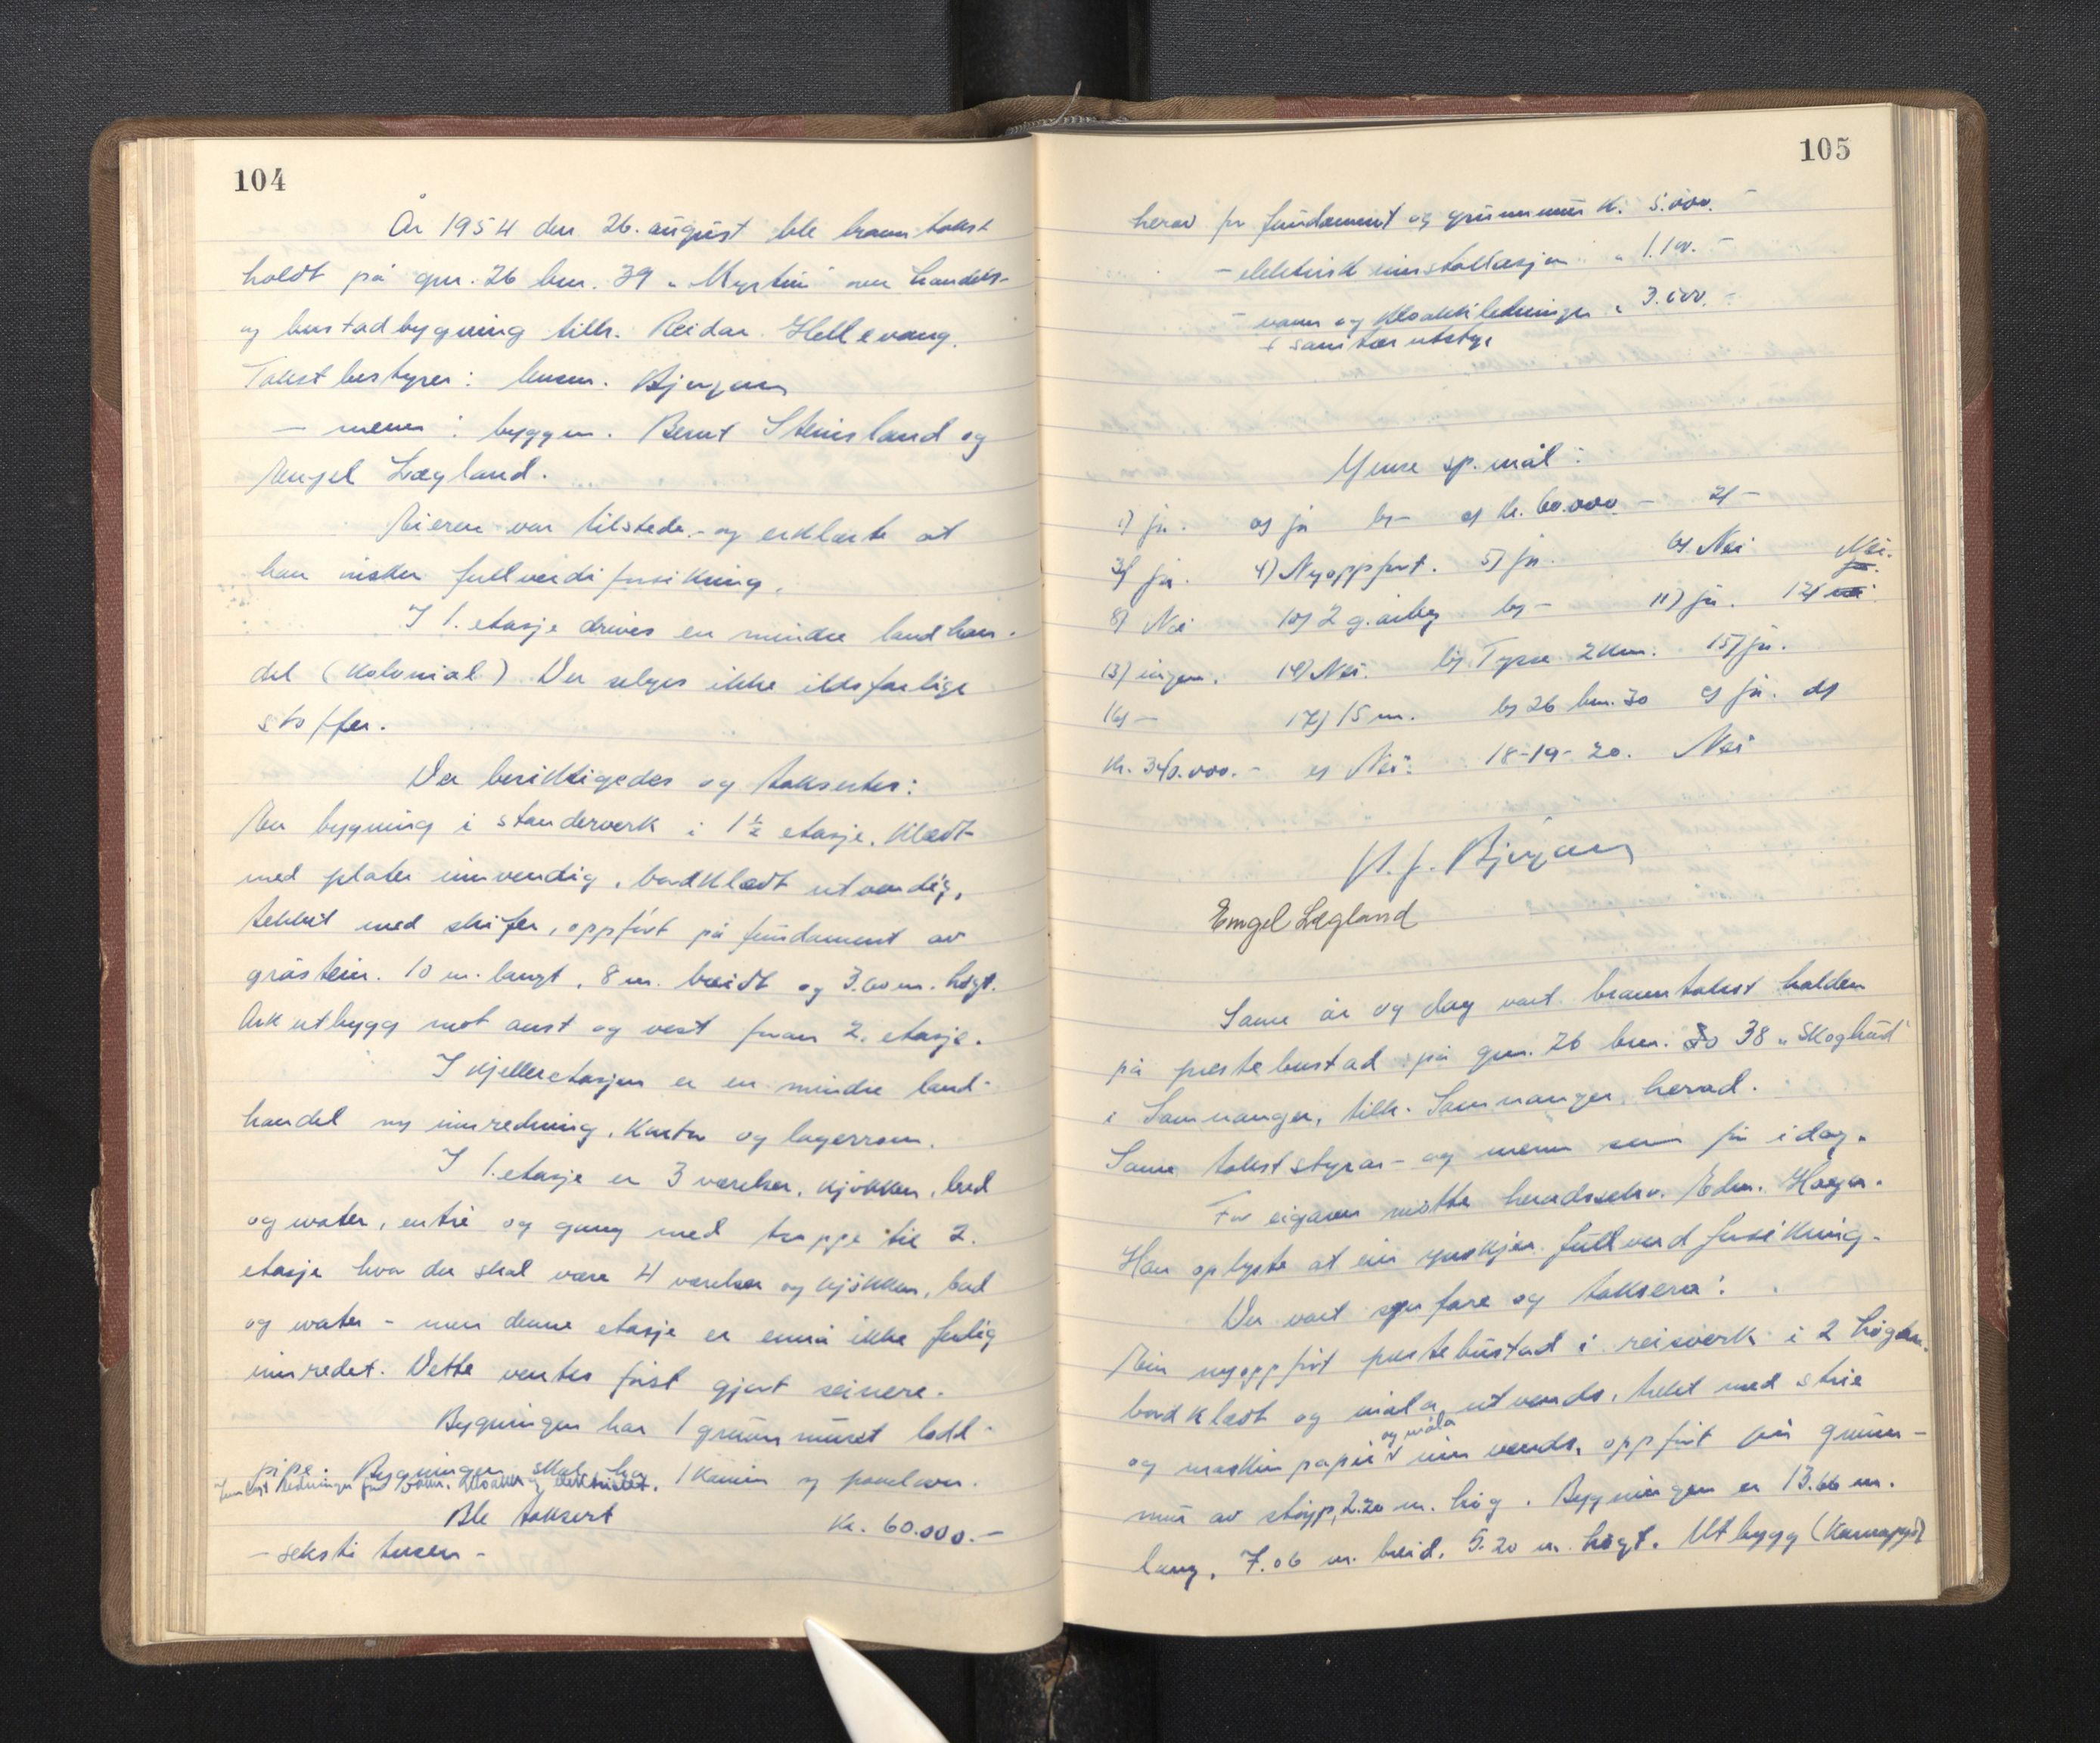 104
År 1954 den 26. august ble branntakst
holdt på gnr. 26 bnr. 39 „ Myrtun" over handels-
og bustadbygning tilh. Reidar Hellevang.
Takstbestyrer: lensm. Bjørgum
— menn: byggm. Bernt Steinsland og
Engel Lægland.
Eieren var tilstede - og erklærte at
han ønsker fullverdiforsikring.
I 1. etasje drives en mindre landhan-
del (kolonial) Der selges ikke ildsfarlige
stoffer.
Der besiktigedes og taksertes:
En bygning i standerverk i 1 ½ etasje. Klædt
med plater innvendig, bordklædt utvendig,
tekket med skifer, oppført på fundament av
gråstein. 10 m. langt, 8 m. breidt og 3.60 m. høgt.
Ark utbygg mot aust og vest fram 2. etasje.
I kjelleretasjen er en mindre land-
handel ny innredning, kontor og lagerrom.
I 1. etasje er 3 værelser, kjøkken, bad
og water, entré og gang med trappe til 2.
etasje hvor der skal være 4 værelser og kjøkken, bad
og water - men denne etasje er ennå ikke ferdig
innredet. Dette ventes først gjort seinere.
Bygningen har 1 grunnmuret lodd-
pipe. Bygningen skal ha 1 kamin og
ledninger for vann, kloakk og elektrisitet.
Ble taksert Kr. 60.000.-
- seksti tusen -
105
herav for fundament og grunnmur K. 5.000.-
- elektrisk installasjon „ 1.100.-
- vann og kloakkledninger „ 3.000.-
+ sanitær utstyr
Ymse sp.mål:
1) ja. a) ja b) - c) kr. 60.000.- 2) -
3) ja. 4) Nyoppført. 5) ja. 6) Nei Nei.
8) Nei 10) 2 g. årleg b) - 11) ja. 12) nei
13) ingen. 14) Nei. b) Tysse 2 km. 15) ja.
16) - 17) 15 m. b) 26 bnr. 30 c) ja. d)
Kr. 340.000.- e) Nei. 18-19-20. Nei
Bjørgum
Engel Lægland
Same år og dag vart branntakst halden
på prestebustad på gnr. 26 bnr. 38 „Skoglund"
i Samnanger, tilh. Samnanger herad.
Same takststyrar - og menn som før i dag.
For eigaren møtte heradssekr. Edm. Haga.
Han oplyste at ein ynskjer fullverd forsikring.
Der vart synfare og taksera:
Ein nyoppført prestebustad i reisverk i 2 høgder.
bordklædt og måla utvendes, tekt med
og maskinpapir og måla innvendes, oppført på grunn-
mur av støyp, 2.20 m. høg. Bygningen er 13.66 m.
lang, 7.06 m. breid, 5.20 m. høgt. Utbygg (karnapp)